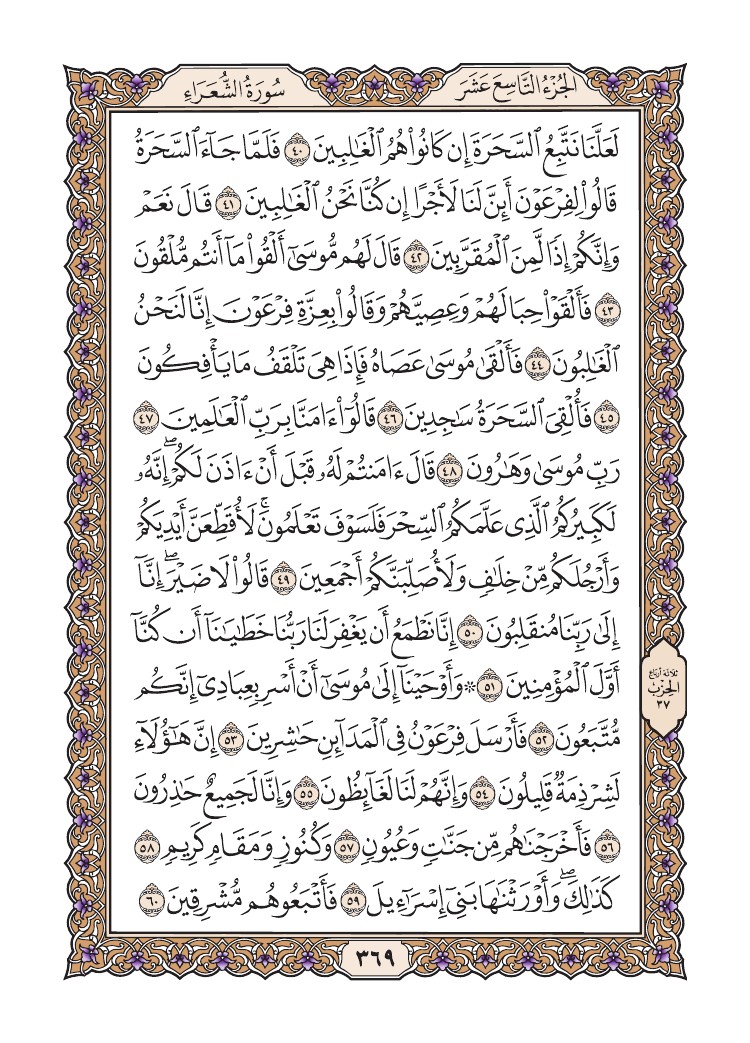 الجُزْءُ التَّاسِعَ عَشَرَ
سُورَةُ الشُّعَرَاءِ
لَعَلَّنَا نَتَّبِعُ ٱلسَّحَرَةَ إِن كَانُوا۟ هُمُ ٱلْغَـٰلِبِينَ ٤٠ فَلَمَّا جَآءَ ٱلسَّحَرَةُ
قَالُوا۟ لِفِرْعَوْنَ أَئِنَّ لَنَا لَأَجْرًا إِن كُنَّا نَحْنُ ٱلْغَـٰلِبِينَ ٤١ قَالَ نَعَمْ
وَإِنَّكُمْ إِذًا لَّمِنَ ٱلْمُقَرَّبِينَ ٤٢ قَالَ لَهُم مُّوسَىٰٓ أَلْقُوا۟ مَآ أَنتُم مُّلْقُونَ
٤٣ فَأَلْقَوْا۟ حِبَالَهُمْ وَعِصِيَّهُمْ وَقَالُوا۟ بِعِزَّةِ فِرْعَوْنَ إِنَّا لَنَحْنُ
ٱلْغَـٰلِبُونَ ٤٤ فَأَلْقَىٰ مُوسَىٰ عَصَاهُ فَإِذَا هِىَ تَلْقَفُ مَا يَأْفِكُونَ
٤٥ فَأُلْقِىَ ٱلسَّحَرَةُ سَـٰجِدِينَ ٤٦ قَالُوٓا۟ ءَامَنَّا بِرَبِّ ٱلْعَـٰلَمِينَ ٤٧
رَبِّ مُوسَىٰ وَهَـٰرُونَ ٤٨ قَالَ ءَامَنتُمْ لَهُۥ قَبْلَ أَنْ ءَاذَنَ لَكُمْ ۖ إِنَّهُۥ
لَكَبِيرُكُمُ ٱلَّذِى عَلَّمَكُمُ ٱلسِّحْرَ فَلَسَوْفَ تَعْلَمُونَ ۚ لَأُقَطِّعَنَّ أَيْدِيَكُمْ
وَأَرْجُلَكُم مِّنْ خِلَـٰفٍ وَلَأُصَلِّبَنَّكُمْ أَجْمَعِينَ ٤٩ قَالُوا۟ لَا ضَيْرَ ۖ إِنَّآ
إِلَىٰ رَبِّنَا مُنقَلِبُونَ ٥٠ إِنَّا نَطْمَعُ أَن يَغْفِرَ لَنَا رَبُّنَا خَطَـٰيَـٰنَآ أَن كُنَّآ
أَوَّلَ ٱلْمُؤْمِنِينَ ٥١ ۞ وَأَوْحَيْنَآ إِلَىٰ مُوسَىٰٓ أَنْ أَسْرِ بِعِبَادِىٓ إِنَّكُم
مُّتَّبَعُونَ ٥٢ فَأَرْسَلَ فِرْعَوْنُ فِى ٱلْمَدَآئِنِ حَـٰشِرِينَ ٥٣ إِنَّ هَـٰٓؤُلَآءِ
لَشِرْذِمَةٌ قَلِيلُونَ ٥٤ وَإِنَّهُمْ لَنَا لَغَآئِظُونَ ٥٥ وَإِنَّا لَجَمِيعٌ حَـٰذِرُونَ
٥٦ فَأَخْرَجْنَـٰهُم مِّن جَنَّـٰتٍ وَعُيُونٍ ٥٧ وَكُنُوزٍ وَمَقَامٍ كَرِيمٍ ٥٨
كَذَٰلِكَ ۖ وَأَوْرَثْنَـٰهَا بَنِىٓ إِسْرَٰٓءِيلَ ٥٩ فَأَتْبَعُوهُم مُّشْرِقِينَ ٦٠
ثلاثة أرباع
الحِزب
٣٧
٣٦٩